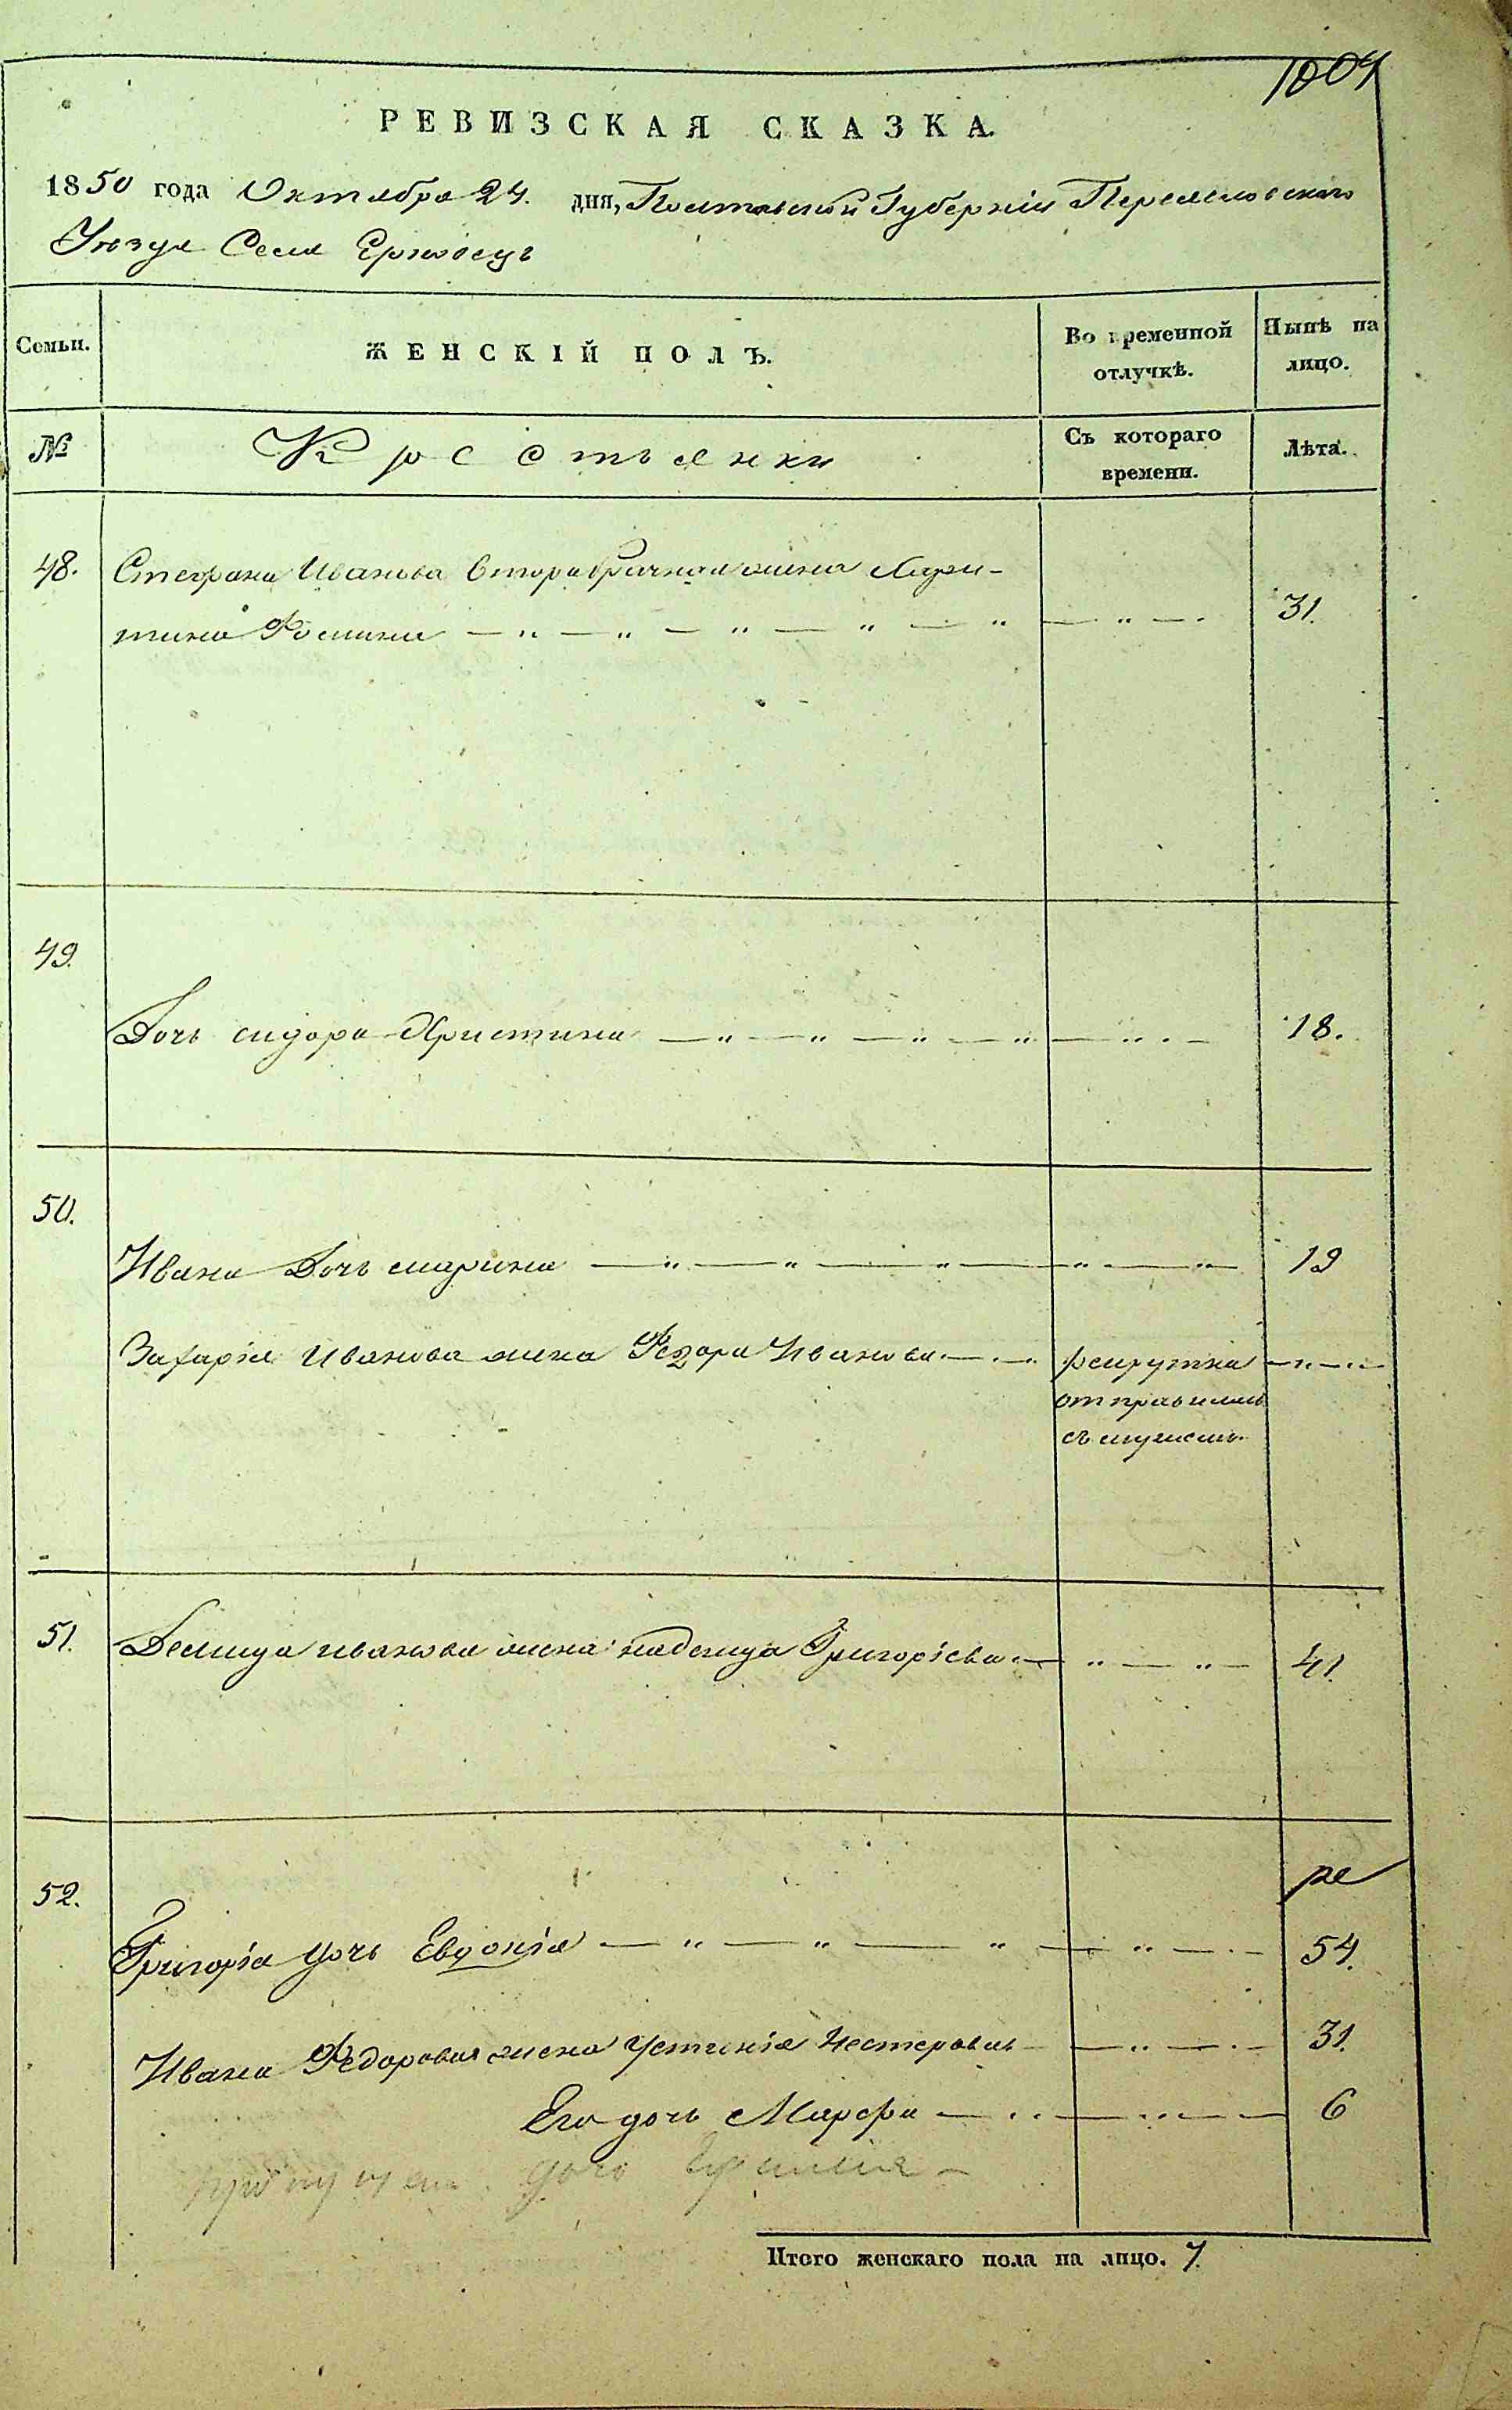 1004
РЕВИЗСКАЯ СКАЗКА.
1850 года Октября 24. дня, Полтавской Губерніи Переяславскаго
Уѣзда Села Ерковецъ
Семьи. ЖЕНСКІЙ ПОЛЪ. Во временной отлучкѣ. Нынѣ на лицо.
№ Крестьянки Съ котораго времени. Лѣта.
48. Стефана Иванова второбрачная жена Хари-
тина Фомина — „ — „ — „ — „ — „ — „ — 31.
49.
Дочь сидора Христина — „ — „ — „ — „ — „ — 18.
50.
Ивана Дочь марина — „ — „ — „ — „ — „ — 19
Захарія Иванова жена Федора Иванова — „ рекрутка — „ — „
отправилась
съ мужемъ.
51. Демида иванова жена надежда Григорієва — „ — „ — 41.
ре
52.
Григорія дочь Евдокія — „ — „ — „ — „ — 54.
Ивана Федорова жена Устинія Нестерова — „ — 31.
Его дочь Марфа — „ — „ — 6
пропущена дочь
Итого женскаго пола на лицо. 7.